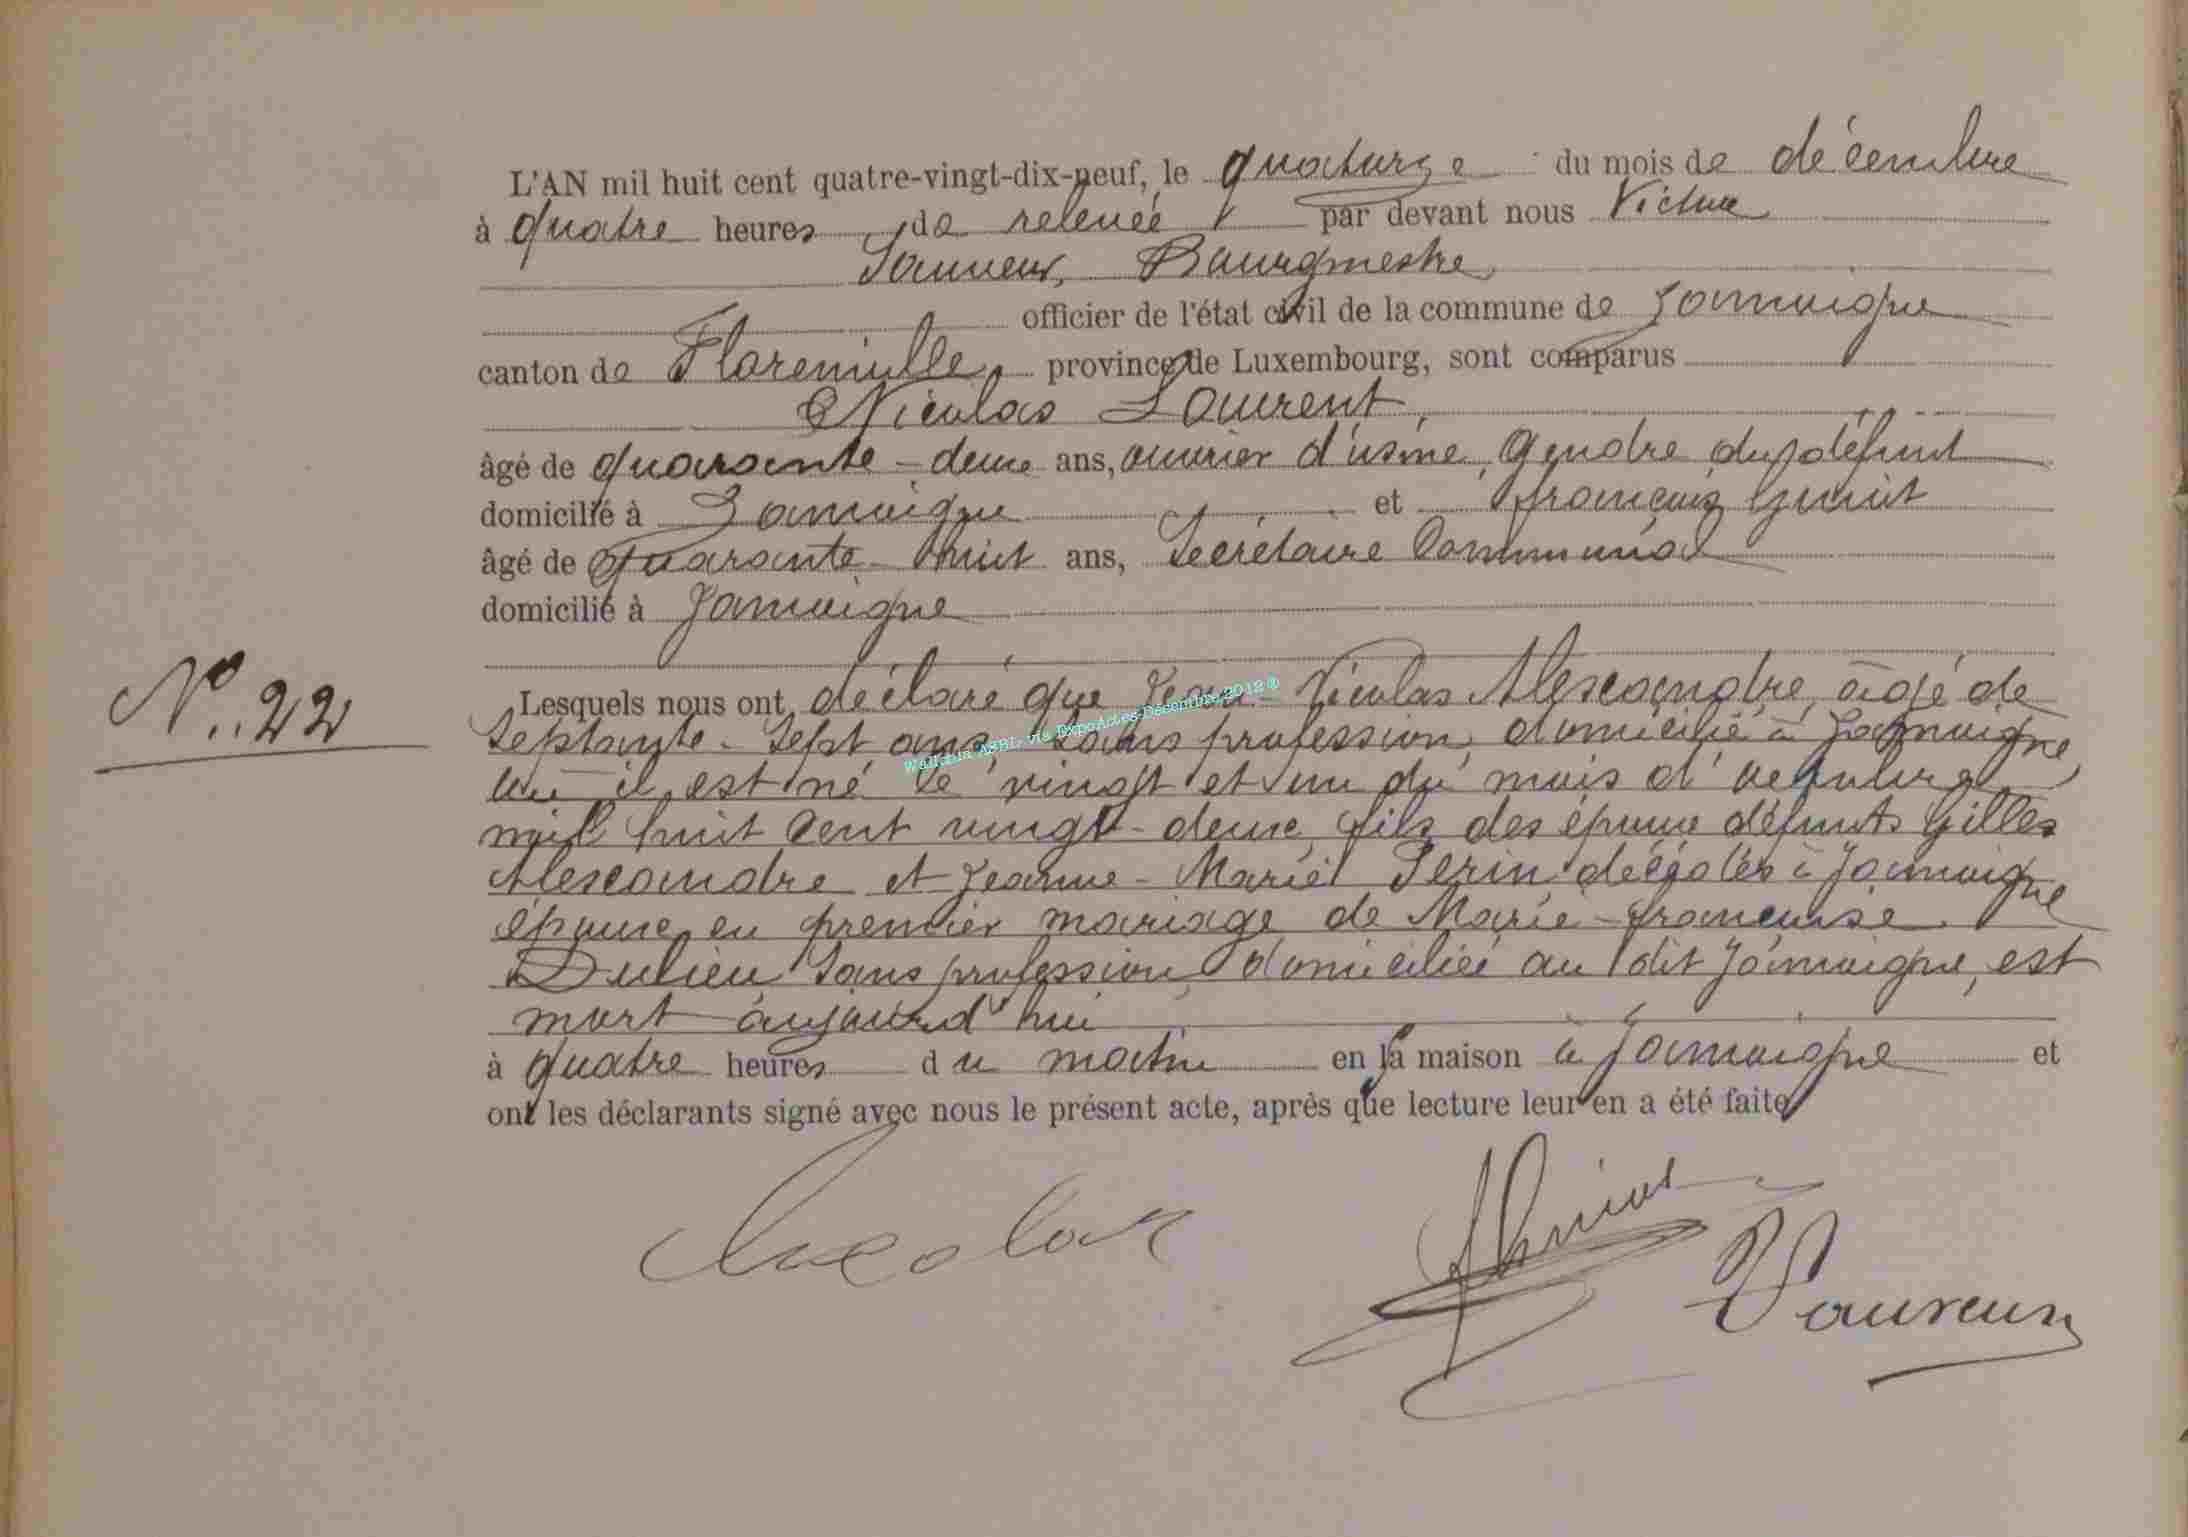 L'AN mil huit cent quatre-vingt-dix-neuf, le quatorze du mois de décembre
à quatre heures de relevée par devant nous Victor
Sauveur, Bourgmestre
officier de l'état civil de la commune de Jamoigne
canton de Florenville, province de Luxembourg, sont comparus
Nicolas Laurent,
âgé de quarante-deux ans, ouvrier d'usine, gendre du défunt
domicilié à Jamoigne et François
âgé de quarante-huit ans, Secrétaire Communal
domicilié à Jamoigne
N° 22
Lesquels nous ont déclaré que Jean-Nicolas Alexandre, âgé de
Septante-Sept ans, Sans profession, domicilié à Jamoigne,
où il est né le vingt et un du mois d'octobre
mil huit Cent vingt-deux, fils des époux défunts Gilles
Alexandre et Jeanne-Marie Perin décédés à Jamoigne
époux en premier mariage de Marie-françoise
Dulieu Sans profession, domiciliée au dit Jamoigne, est
mort aujourd'hui
à quatre heures du matin en sa maison à Jamoigne et
ont les déclarants signé avec nous le présent acte, après que lecture leur en a été faite
Wallonia ASBL via ExpoActes-Décembre 2012 ®
Nicolas
VSauveur